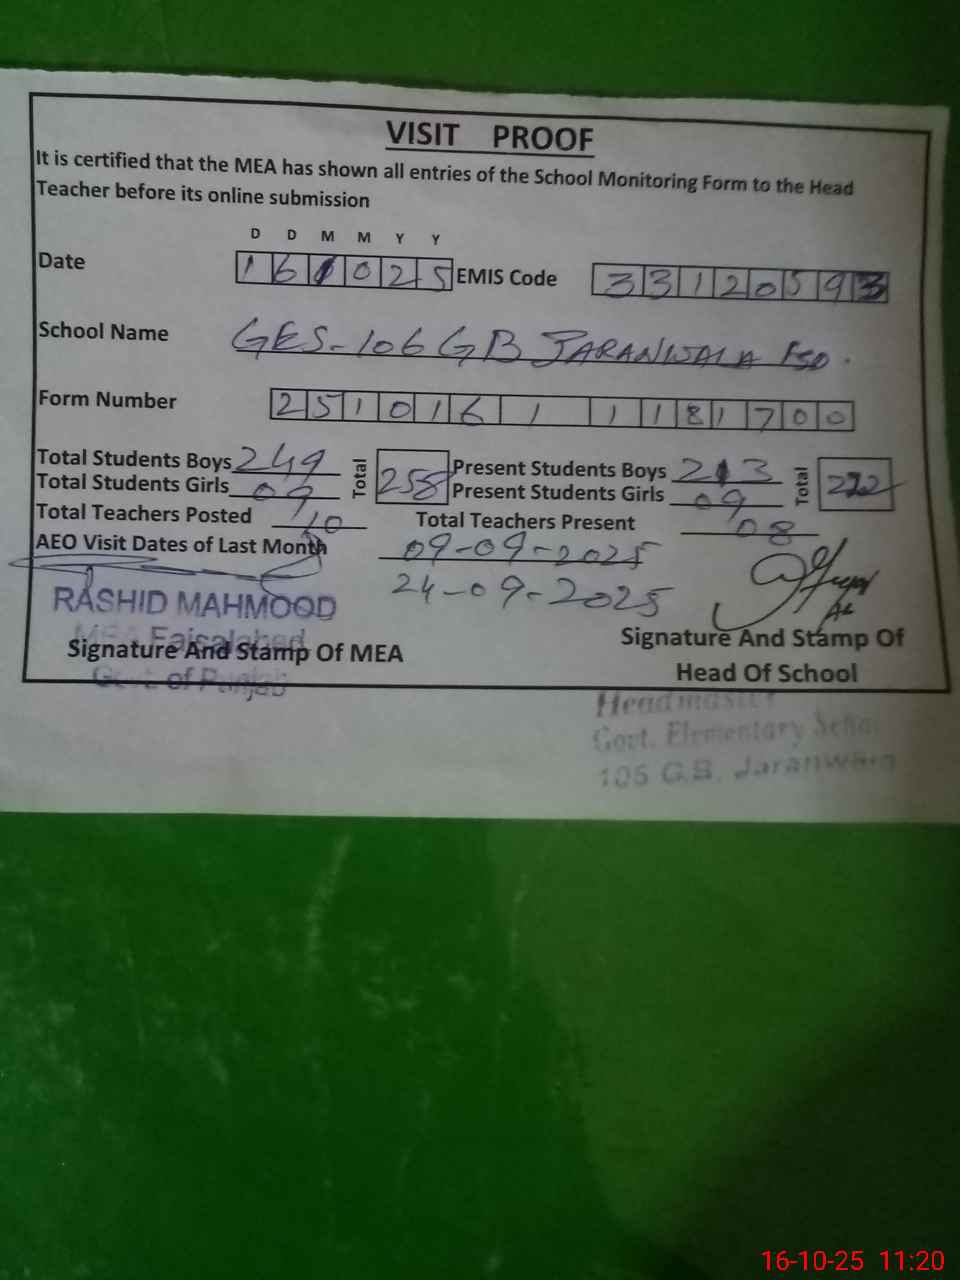 VISIT PROOF
It is certified that the MEA has shown all entries of the School Monitoring Form to the Head
Teacher before its online submission
D D M M Y Y
Date 161025 EMIS Code 33120593
School Name GES-106 GB JARANWALA FSD.
Form Number 251016 1 1181700
Total Students Boys 249 Total 258 Present Students Boys 213 Total 222
Total Students Girls 09 Present Students Girls 09
Total Teachers Posted 10 Total Teachers Present 08
AEO Visit Dates of Last Month 09-09-2025
24-09-2025
RASHID MAHMOOD
MEA Faisalabad
Signature And Stamp Of MEA
Govt. of Punjab
Signature And Stamp Of
Head Of School
Headmaster
Govt. Elementary School
106 G.B. Jaranwala
16-10-25 11:20